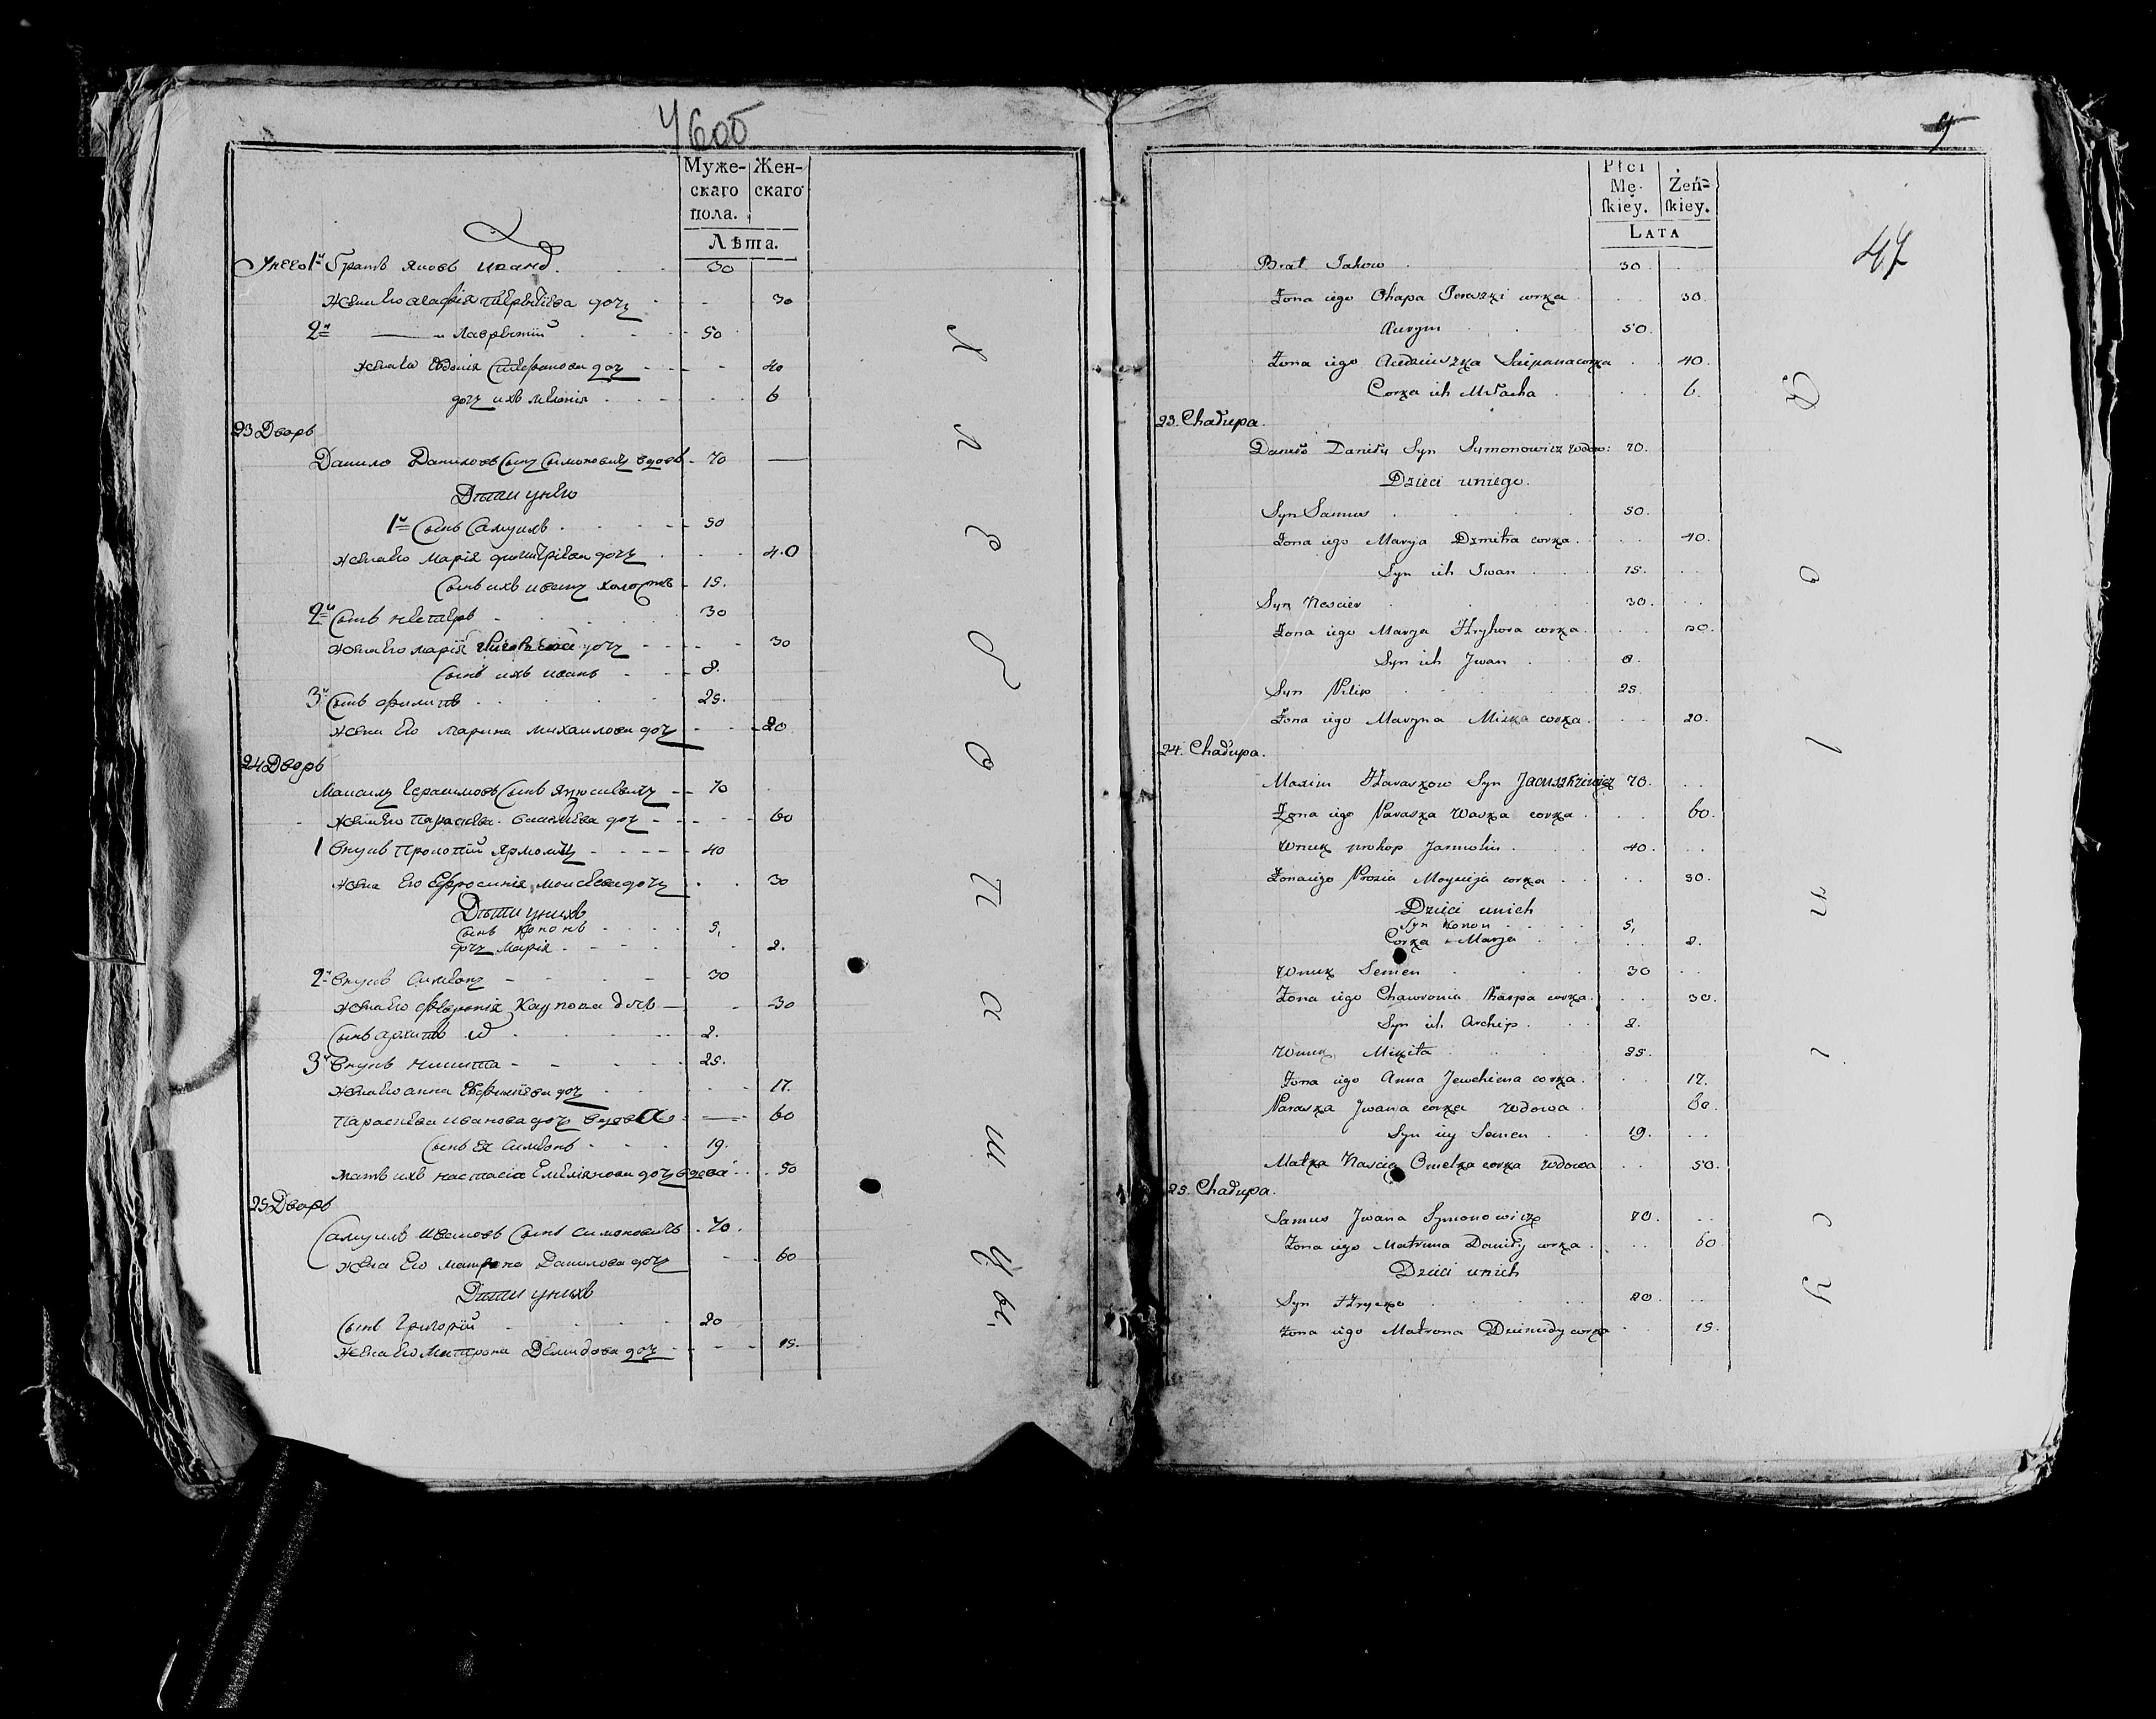 460об
Муже- Жен-
скаго скаго
пола.
Лѣта.
У него 1й братъ яковъ 30
жена Его агафiя дочъ 30
2й Лаврентiй 50
жена Его Евдокiя Стефанова дочъ 40
дочъ ихъ мелания 6
23 Дворъ
Данило Даниловъ Сынъ Симоновичъ вдовъ 70
Дѣти у него
1й Сынъ Самуилъ 50
жена Его Марiя дмитрiева дочъ 40
Сынъ ихъ иванъ холостъ 15.
2й Сынъ нестеръ 30
жена Его марiя дочъ 30
Сынъ ихъ иванъ 8.
3й Сынъ филипъ 25.
жена Его Марина михаилова дочъ 20
24 Дворъ
Максимъ Герасимовъ Сынъ 70
жена Его Параскева василиева дочъ 60
1 внукъ Прокопiй Ярмолинъ 40
жена Его Ефросинiя моисѣева дочъ 30
Дѣти у нихъ
Сынъ кононъ 5,
дочъ Марiя 2.
2й внукъ Симеонъ 30
жена Его феврониiя Карпова дочъ 30
Сынъ архипъ 2.
3й внукъ никита 25.
жена Его анна Евфимiева дочъ 17.
Параскева иванова дочъ вдова 60
Сынъ Ея Симеонъ 19.
мать ихъ настасiя Емелiянова дочъ вдова 50
25 Дворъ
Самуилъ ивановъ Сынъ симоновичъ 70.
жена Его матрона Данилова дочъ 60
Дѣти у нихъ
Сынъ Григорiй 20
жена Его Матрона Демидова дочъ 15.
Л и б о п а ш ц ы.
9
47
Płci
Mę- Żeń-
skiey. skiey.
LATA
Brat Jakow 30.
Żona iego Ohapa corka 30.
Ławryn 50.
Żona iego Audziuszka Sciepana corka 40.
Corka ich Małacha 6.
23. Chałupa.
Daniło Daniły Syn Symonowicz wdow: 70.
Dzieci u niego.
Syn Samus 50.
Żona iego Marya Dzmitra corka. 40.
Syn ich Iwan 15.
Syn Nescier 30.
Żona iego Marya Hryhora corka. 30.
Syn ich Jwan 8.
Syn Filip 25.
Żona iego Maryna Miska corka. 20.
24. Chałupa.
Maxim Haraskow Syn 70.
Żona iego Paraska Waska corka 60.
Wnuk Prokop Jarmolin 40.
Żona iego Prosia Moysieja corka 30.
Dzieci u nich
Syn Konon 5,
Corka Marya 2.
Wnuk Semen 30
Żona iego Chawronia Karpa corka. 30.
Syn ich Archip. 2.
Wnuk Mikita 25.
Żona iego Anna Jewchima corka. 17.
Paraska Jwana corka wdowa 60.
Syn iey Semen 19.
Matka Nascia Omelka corka wdowa 50.
25. Chałupa.
Samus Jwana Symonowicz 70.
Żona iego Matruna Daniły corka 60
Dzieci u nich
Syn Hrycko 20.
Żona iego Matrona Dziemidy corka 15.